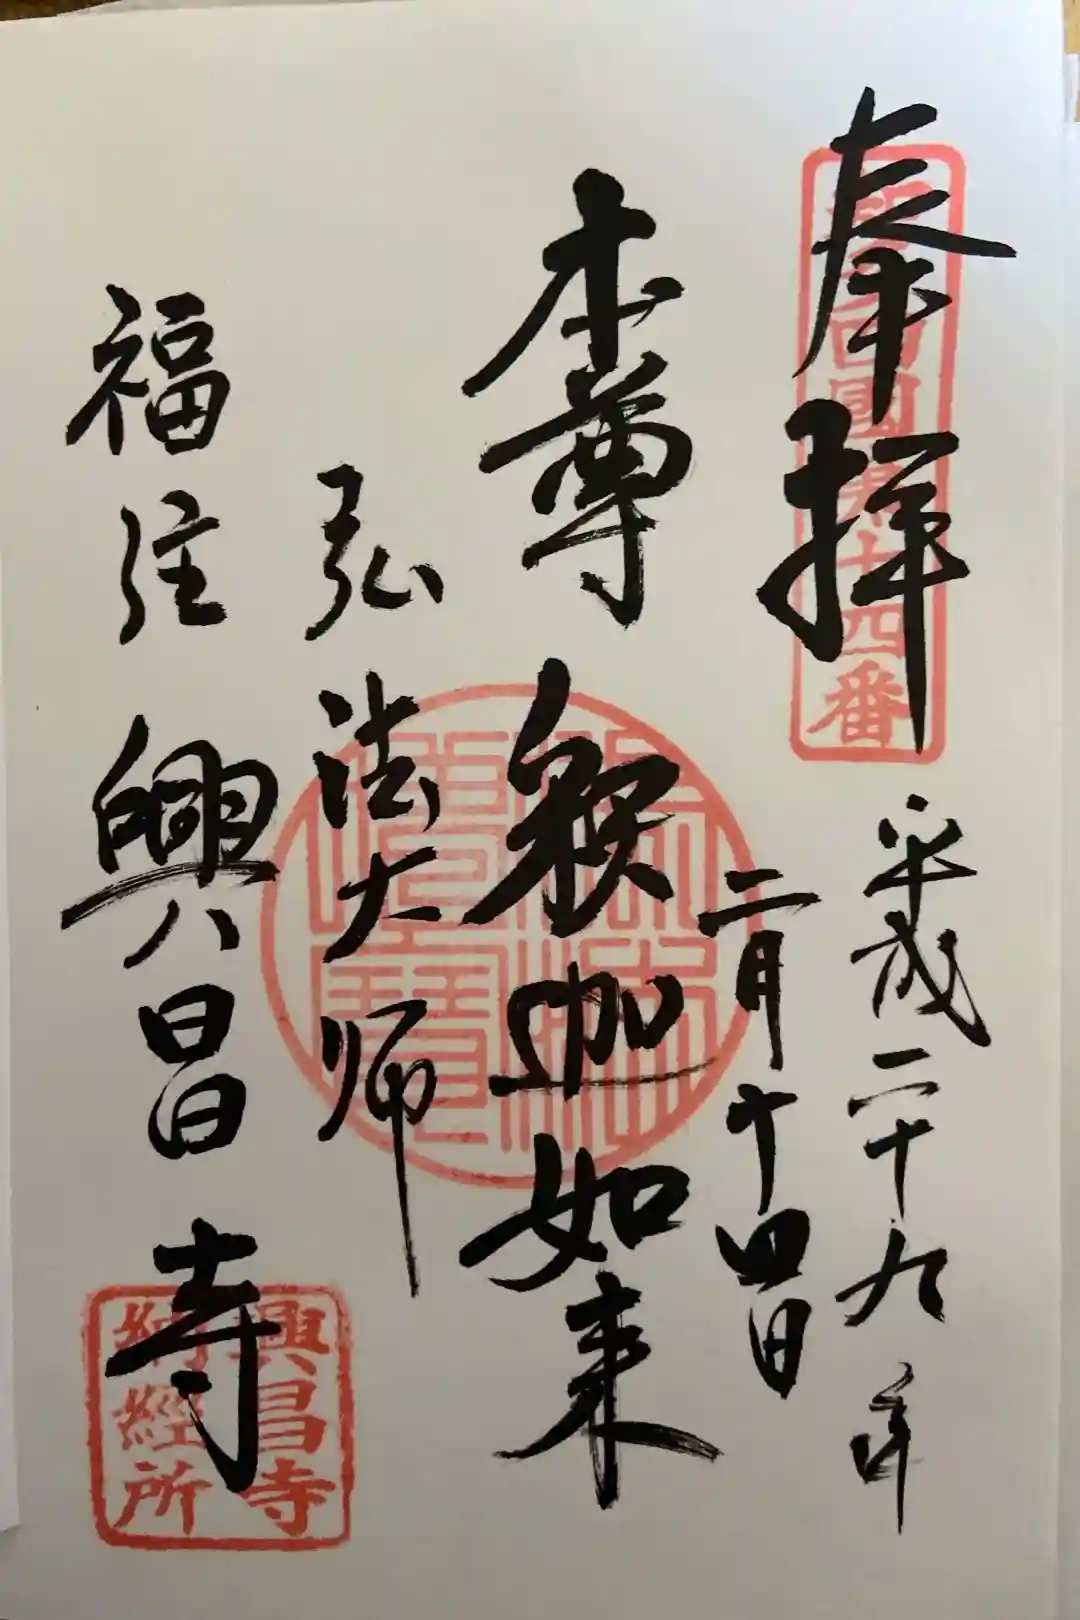 奉拝
四國第十四番
平成二十九年
二月十四日
本尊 釈迦如来
弘法大师
福住 興昌寺
興昌寺
納經所